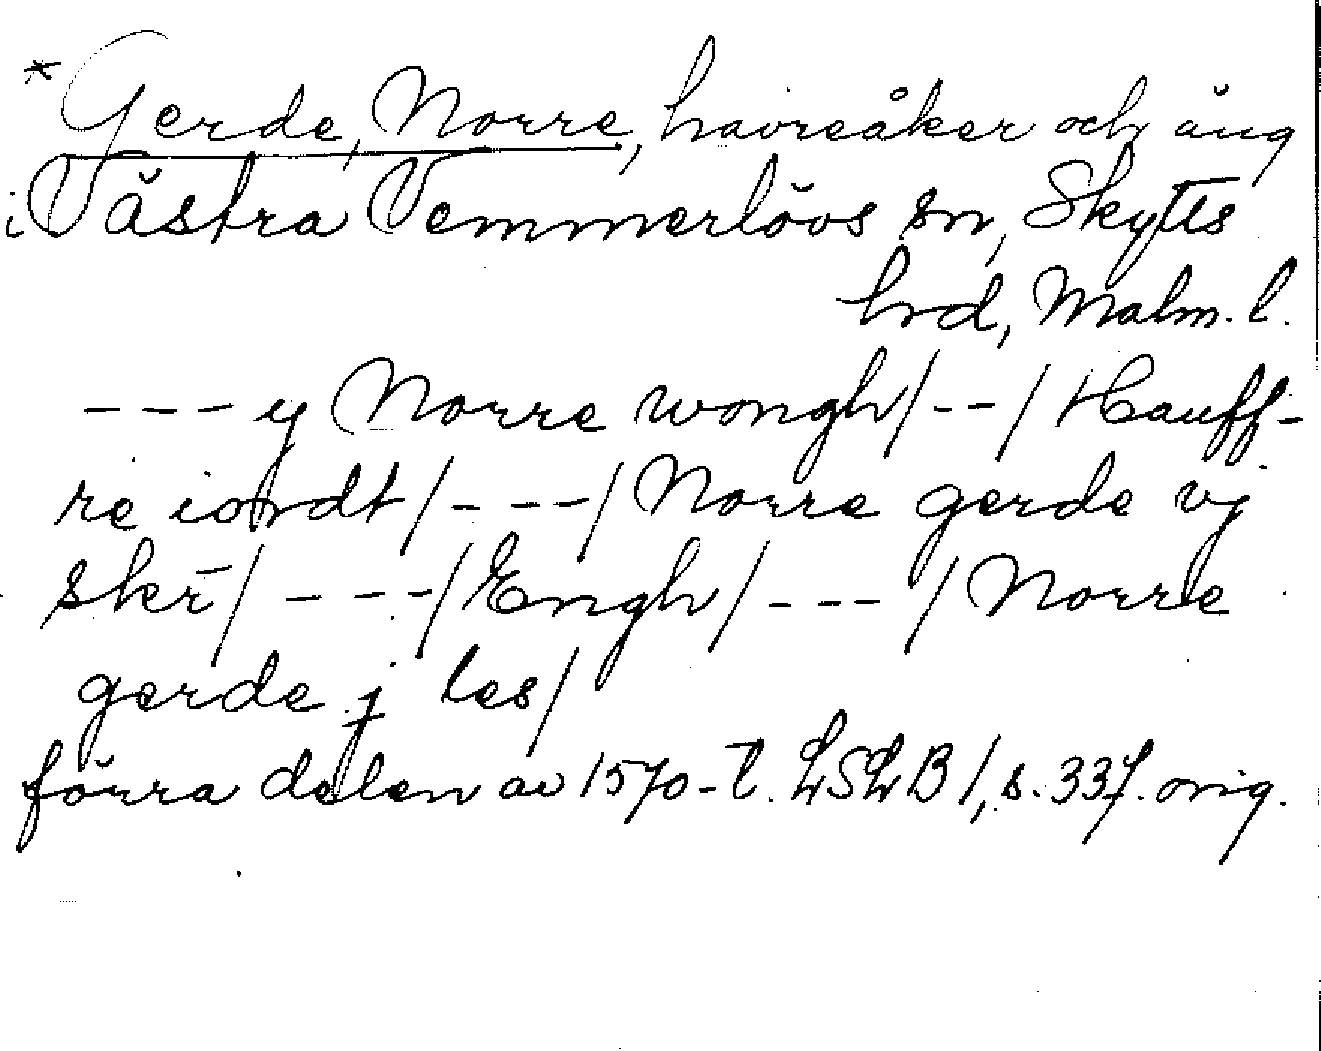 * Gerde, Norre, havreåker och äng
i Västra Vemmerlövs sn, Skytts
hrd, Malm. l.
--- y Norre wongh/--/Hauff-
re iordt/---/Norre gerde vj
skr̄/---/Engh/---/Norre
gerde j les/
förra delen av 1570-t. LSLB 1, s. 337. orig.